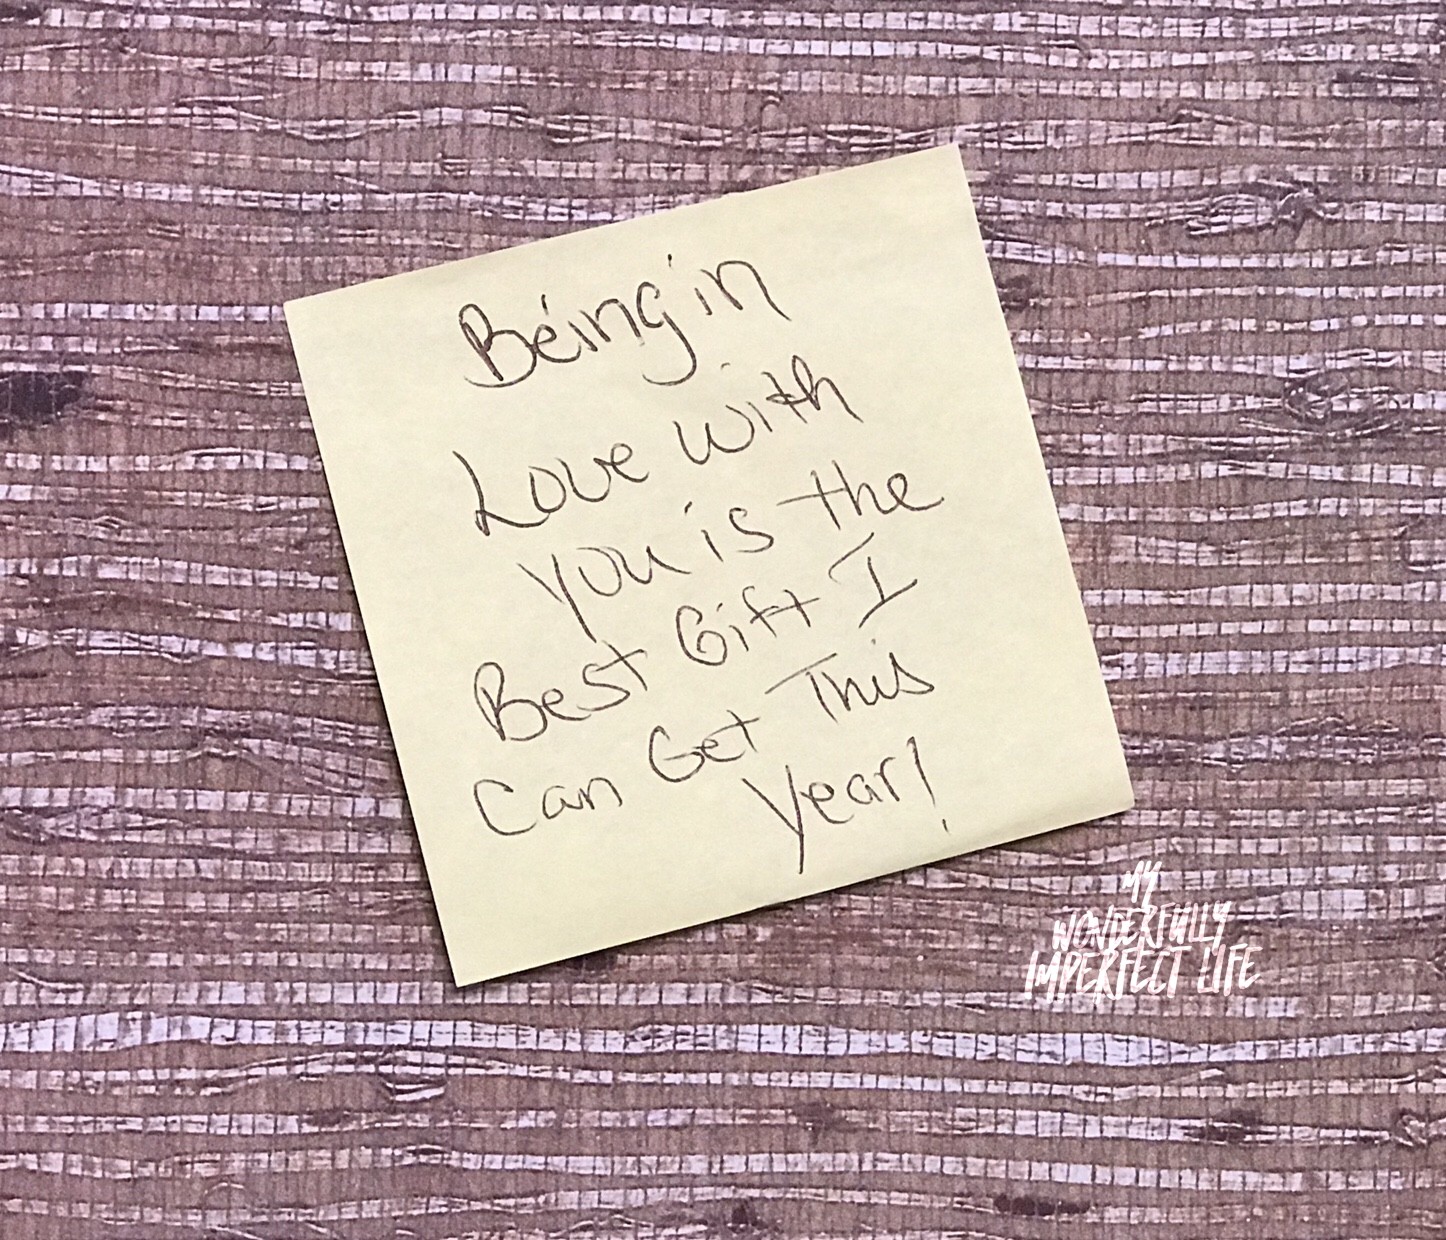 Being in
Love with
you is the
Best Gift I
Can Get This
Year!
MY
WONDERFULLY
IMPERFECT LIFE